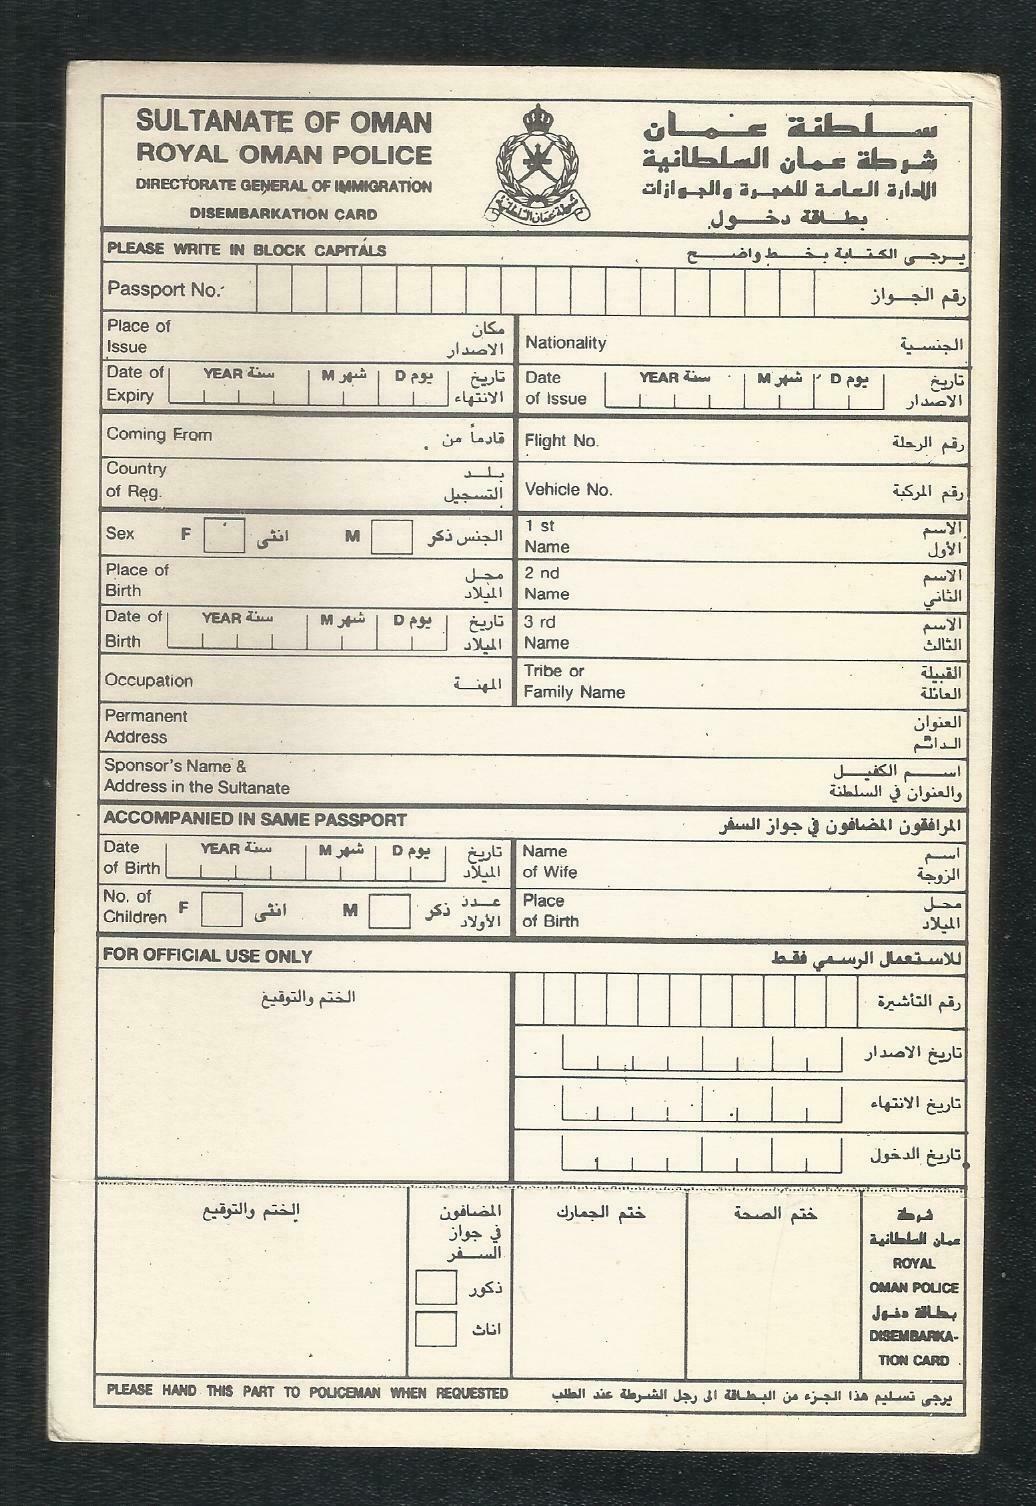 SULTANATE OF OMAN
سلطنة عمان
ROYAL OMAN POLICE
شرطة عمان السلطانية
DIRECTORATE GENERAL OF IMMIGRATION
الادارة العامة للهجرة والجوازات
DISEMBARKATION CARD
بطاقة دخول
شرطة عمان السلطانية
PLEASE WRITE IN BLOCK CAPITALS
يرجى الكتابة بخط واضح
Passport No.
رقم الجواز
Place of
Issue
مكان
الاصدار
Nationality
الجنسية
Date of
Expiry
YEAR سنة M شهر D يوم
تاريخ
الانتهاء
Date
of Issue
YEAR سنة M شهر D يوم
تاريخ
الاصدار
Coming From
قادماً من
Flight No.
رقم الرحلة
Country
of Reg.
بلد
التسجيل
Vehicle No.
رقم المركبة
Sex F انثى M الجنس ذكر
1 st
Name
الاسم
الأول
Place of
Birth
محل
الميلاد
2 nd
Name
الاسم
الثاني
Date of
Birth
YEAR سنة M شهر D يوم
تاريخ
الميلاد
3 rd
Name
الاسم
الثالث
Occupation
المهنة
Tribe or
Family Name
القبيلة
العائلة
Permanent
Address
العنوان
الدائم
Sponsor's Name &
Address in the Sultanate
اسم الكفيل
والعنوان في السلطنة
ACCOMPANIED IN SAME PASSPORT
المرافقون المضافون في جواز السفر
Date
of Birth
YEAR سنة M شهر D يوم
تاريخ
الميلاد
Name
of Wife
اسم
الزوجة
No. of
Children
F انثى M ذكر
عدد
الأولاد
Place
of Birth
محل
الميلاد
FOR OFFICIAL USE ONLY
للاستعمال الرسمي فقط
الختم والتوقيع
رقم التأشيرة
تاريخ الاصدار
تاريخ الانتهاء
تاريخ الدخول
الختم والتوقيع
المضافون
في جواز
السفر
ذكور
اناث
ختم الجمارك
ختم الصحة
شرطة
عمان السلطانية
ROYAL
OMAN POLICE
بطاقة دخول
DISEMBARKA-
TION CARD
PLEASE HAND THIS PART TO POLICEMAN WHEN REQUESTED
يرجى تسليم هذا الجزء من البطاقة الى رجل الشرطة عند الطلب